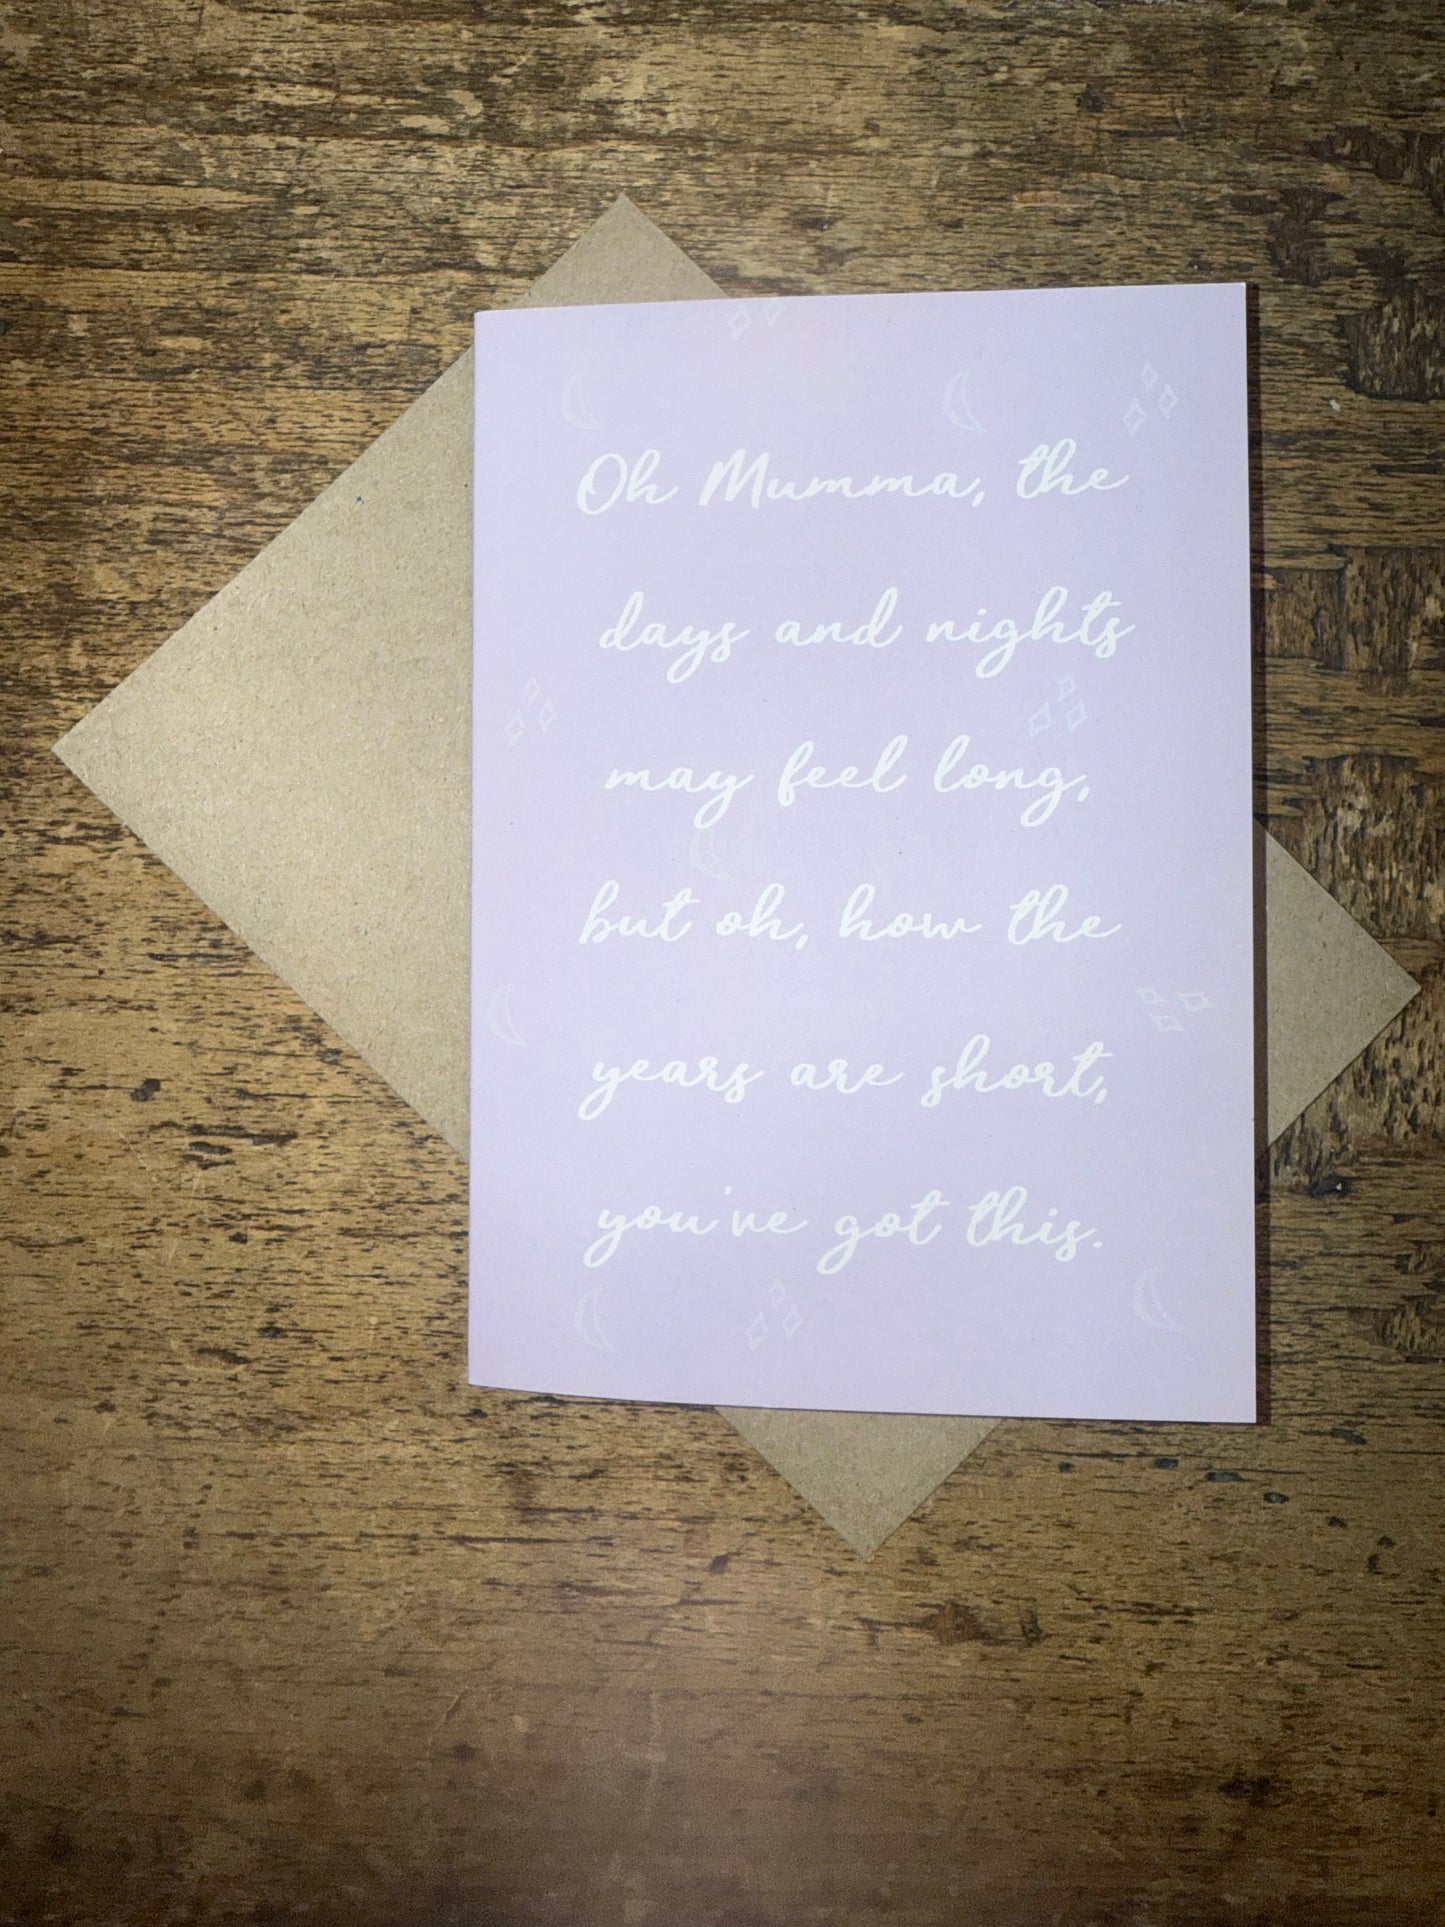 Oh Mumma, the
days and nights
may feel long,
but oh, how the
years are short,
you've got this.